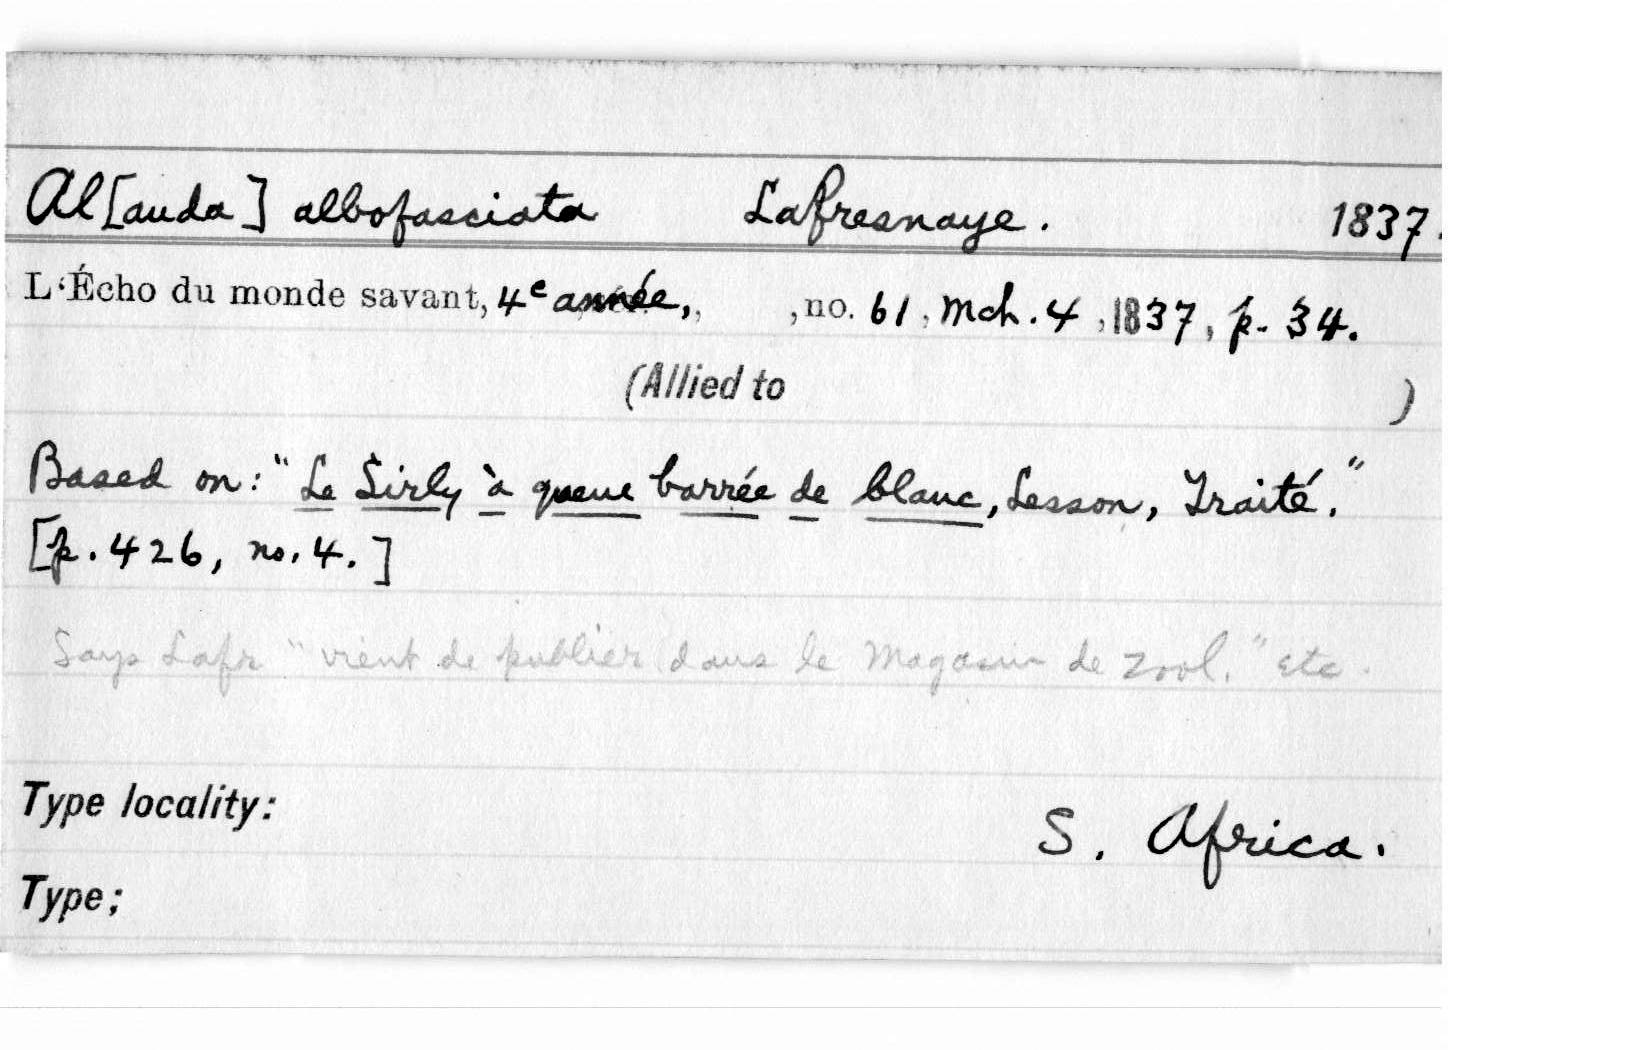 Al[auda] albofasciata Lafresnaye. 1837.
L'Écho du monde savant, 4e année, , no. 61, Mch. 4, 1837, p. 34.
(Allied to )
Based on: "Le Sirly à queue barrée de blanc, Lesson, Traité."
[p. 426, no. 4.]
Says Lafr "vient de publier dans le Magasin de Zool." etc.
Type locality: S. Africa.
Type;